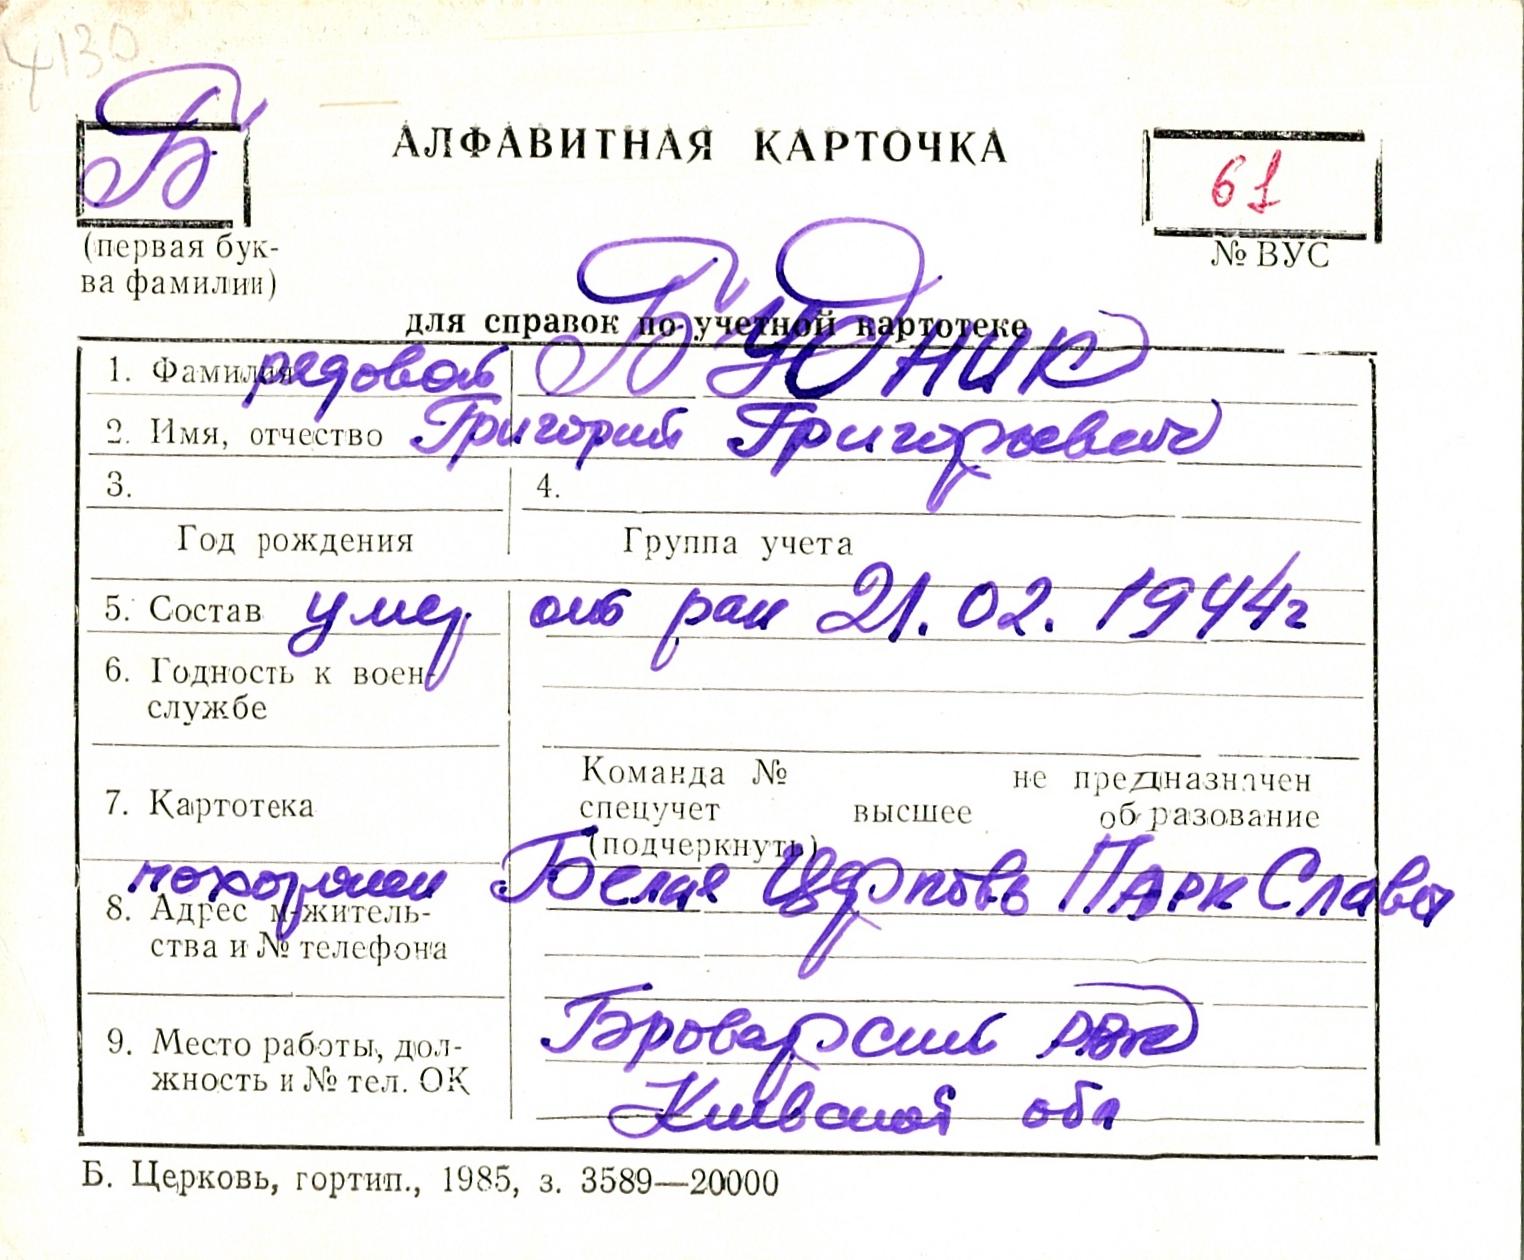 4130
Б
АЛФАВИТНАЯ КАРТОЧКА
61
(первая бук-
ва фамилии)
№ ВУС
для справок по учетной картотеке
1. Фамилия рядовой БУДНИК
2. Имя, отчество Григорий Григорьевич
3. 4.
Год рождения Группа учета
5. Состав умер от ран 21.02.1944г
6. Годность к воен-
службе
Команда № не предназначен
7. Картотека спецучет высшее образование
(подчеркнуть)
похоронен Белая Церковь Парк Славы
8. Адрес м-житель-
ства и № телефона
Броварский РВК
9. Место работы, дол-
жность и № тел. ОК
Киевской обл
Б. Церковь, гортип., 1985, з. 3589—20000